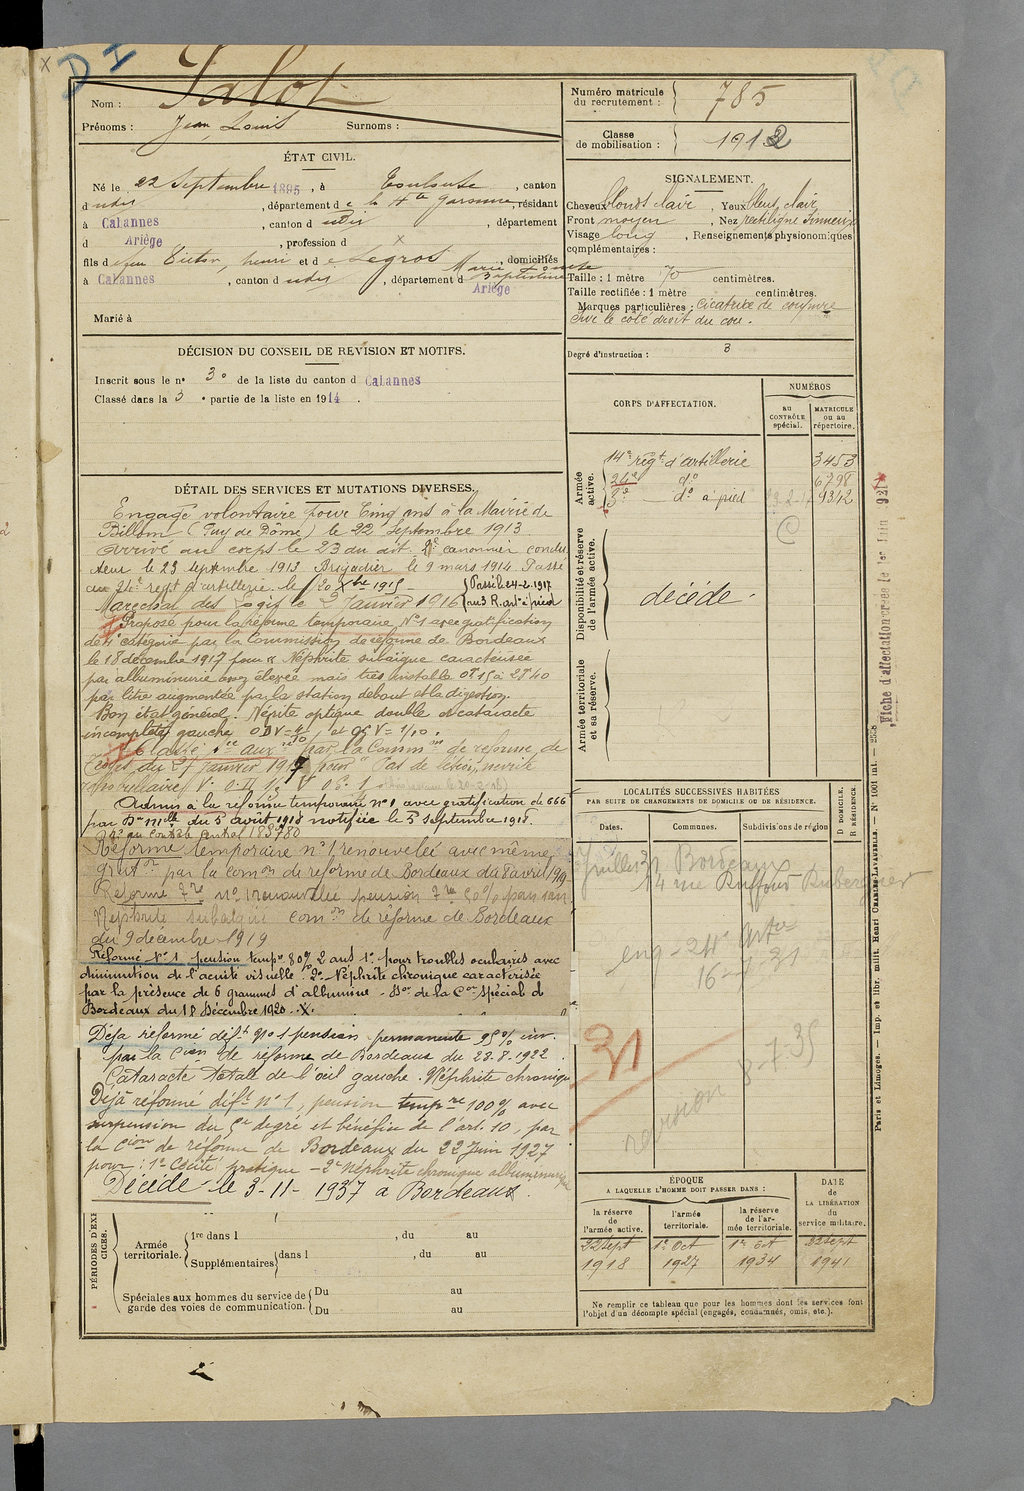 X
D I
Nom : Salot
Prénoms : Jean Louis Surnoms :
ÉTAT CIVIL.
Né le 22 Septembre 1895, à Toulouse, canton
dudit, département de la Hte Garonne, résidant
à Cabannes, canton dudit, département
d Ariège, profession d x
fils de feu Victor, henri et de Legros Marie Baptistine, domiciliés
à Cabannes, canton dudit, département d Ariège
Marié à
DÉCISION DU CONSEIL DE REVISION ET MOTIFS.
Inscrit sous le n° 30 de la liste du canton d Cabannes
Classé dans la 3e partie de la liste en 1914.
DÉTAIL DES SERVICES ET MUTATIONS DIVERSES.
Engagé volontaire pour Cinq ans à la Mairie de
Billom (Puy de Dôme) le 22 Septembre 1913.
arrivé au corps le 23 du dit. 2e canonnier conduc
teur le 23 septembre 1913 Brigadier le 9 mars 1914 Passé
au 24e regt d'artillerie le 20 Xbre 1915
Maréchal des Logis le 2 Janvier 1916 Passé le 24-2-1917
au 3 R. art à pied
Proposé pour la Réforme temporaire N°1 avec gratification
de 4e catégorie par la Commission de réforme de Bordeaux
le 18 décembre 1917 pour Néphrite subaïgue caractérisée
par albuminurie assez élevée mais très instable 0gr15 à 2gr40
par litre augmentée par la station debout et la digestion.
Bon état général. Névrite optique double et cataracte
incomplète gauche ODV = 4/10 et OGV = 1/10.
Classé sce auxre par la Common de réforme de
du 27 janvier 1917 pour
Admis à la réforme temporaire n°1 avec gratification de 666
par Don mielle du 5 août 1918 notifiée le 5 septembre 1918.
n° au Contrôle Central 183780
Réforme temporaire n°1 renouvelée avec même
graton par la comon de réforme de Bordeaux du 8 avril 1919
Réforme Tre n°1 renouvelée pension Tre 50% pour
Néphrite subaïgue comon de réforme de Bordeaux
du 9 décembre 1919
Réformé N°1 pension tempre 80% 2 ans 1° pour troubles oculaires avec
diminution de l'acuité visuelle. 2° Néphrite chronique caractérisée
par la présence de 6 grammes d'albumine - Don de la Con spéciale de
Bordeaux du 18 Décembre 1920. X.
Déjà réformé déft N°1 pension permanente 95% inv.
par la Cion de réforme de Bordeaux du 28.8.1922.
Cataracte totale de l'œil gauche. Néphrite chronique
Déjà réformé déft n°1, pension tempre 100% avec
surpension du 5e degré et bénéfice de l'art. 10, par
la Cion de réforme de Bordeaux du 22 Juin 1927
pour : 1° Cécité pratique - 2° Néphrite chronique albuminurique
Décédé le 3-11-1937 à Bordeaux.
PÉRIODES D'EXERCICES.
Armée territoriale.
1re dans l , du au
Supplémentaires dans l , du au
Spéciales aux hommes du service de garde des voies de communication.
Du au
Du au
Numéro matricule du recrutement : 785
Classe de mobilisation : 1912
SIGNALEMENT.
Cheveux blonds clair, Yeux bleus clair
Front moyen, Nez rectiligne sinueux
Visage long, Renseignements physionomiques
complémentaires :
Taille : 1 mètre 70 centimètres.
Taille rectifiée : 1 mètre centimètres.
Marques particulières : Cicatrice de coupure
sur le côté droit du cou.
Degré d'instruction : 3
CORPS D'AFFECTATION.
NUMÉROS
AU CONTRÔLE spécial.
MATRICULE OU AU répertoire.
Armée active.
14e regt d'artillerie 3453
24e do 6798
3e — do à pied 9342
Disponibilité et réserve de l'armée active.
décédé.
Armée territoriale et sa réserve.
LOCALITÉS SUCCESSIVES HABITÉES
PAR SUITE DE CHANGEMENTS DE DOMICILE OU DE RÉSIDENCE.
Dates. Communes. Subdivisions de région D. DOMICILE. R. RÉSIDENCE.
Juillet 31 Bordeaux
14 rue
eng - 24e Arte
16-7-31
31
8-7-35
revision
ÉPOQUE
A LAQUELLE L'HOMME DOIT PASSER DANS :
la réserve de l'armée active.
l'armée territoriale.
la réserve de l'armée territoriale.
DATE de LA LIBÉRATION du service militaire.
22 Sept 1er Oct 1er Oct 22 Sept
1918 1927 1934 1941
Ne remplir ce tableau que pour les hommes dont les services font
l'objet d'un décompte spécial (engagés, condamnés, omis, etc.).
Fiche d'affectation créée le 1er Juin 921
Paris et Limoges. — Imp. et libr. milit. Henri CHARLES-LAVAUZELLE. — N° 1001 int.